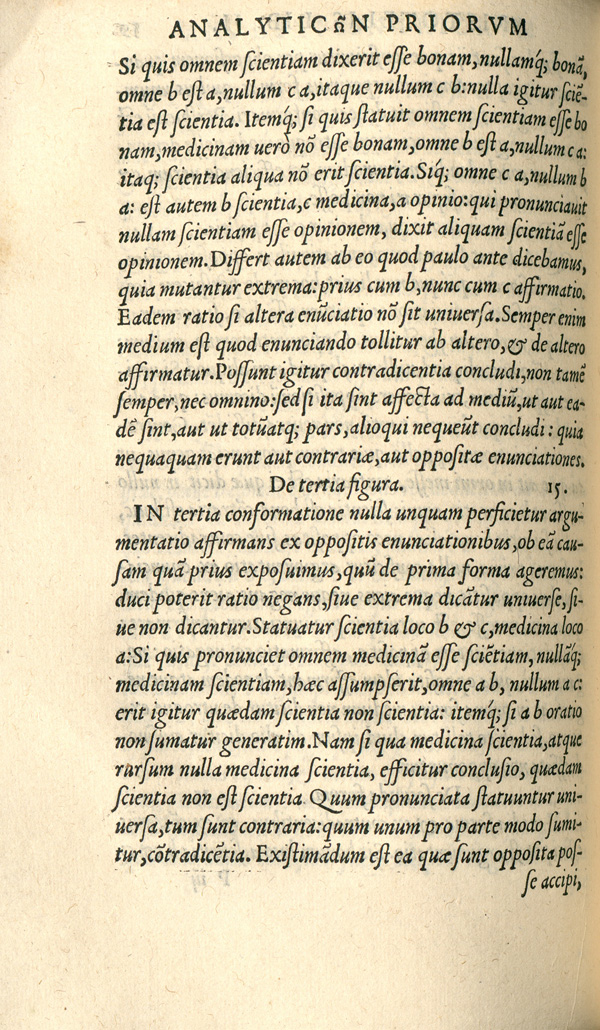 ANALYTICωN PRIORVM
Si quis omnem ſcientiam dixerit eſſe bonam, nullamq́; bonā,
omne b eſt a, nullum c a, itaque nullum c b: nulla igitur ſciē-
tia eſt ſcientia. Itemq́; ſi quis ſtatuit omnem ſcientiam eſſe bo
nam, medicinam uerò nō eſſe bonam, omne b eſt a, nullum c a:
itaq; ſcientia aliqua nō erit ſcientia. Siq́; omne c a, nullum b
a: eſt autem b ſcientia, c medicina, a opinio: qui pronunciauit
nullam ſcientiam eſſe opinionem, dixit aliquam ſcientiā eſſe
opinionem. Differt autem ab eo quod paulo ante dicebamus,
quia mutantur extrema: prius cum b, nunc cum c affirmatio.
Eadem ratio ſi altera enūciatio nō ſit uniuerſa. Semper enim
medium eſt quod enunciando tollitur ab altero, & de altero
affirmatur. Poſſunt igitur contradicentia concludi, non tamē
ſemper, nec omnino: ſed ſi ita ſint affecta ad mediū, ut aut ea-
dē ſint, aut ut totū atq; pars, alioqui nequeūt concludi : quia
nequaquam erunt aut contrariæ, aut oppoſitæ enunciationes.
De tertia figura. 15.
IN tertia conformatione nulla unquam perficietur argu-
mentatio affirmans ex oppoſitis enunciationibus, ob eā cau-
ſam quā prius expoſuimus, quū de prima forma ageremus:
duci poterit ratio negans, ſiue extrema dicātur uniuerſe, ſi-
ue non dicantur. Statuatur ſcientia loco b & c, medicina loco
a: Si quis pronunciet omnem medicinā eſſe ſciētiam, nullāq́;
medicinam ſcientiam, hæc aſſumpſerit, omne a b, nullum a c:
erit igitur quædam ſcientia non ſcientia: itemq́; ſi a b oratio
non ſumatur generatim. Nam ſi qua medicina ſcientia, atque
rurſum nulla medicina ſcientia, efficitur concluſio, quædam
ſcientia non eſt ſcientia. Quum pronunciata ſtatuuntur uni-
uerſa, tum ſunt contraria: quum unum pro parte modo ſumi-
tur, cōtradicētia. Exiſtimādum eſt ea quæ ſunt oppoſita poſ-
ſe accipi,